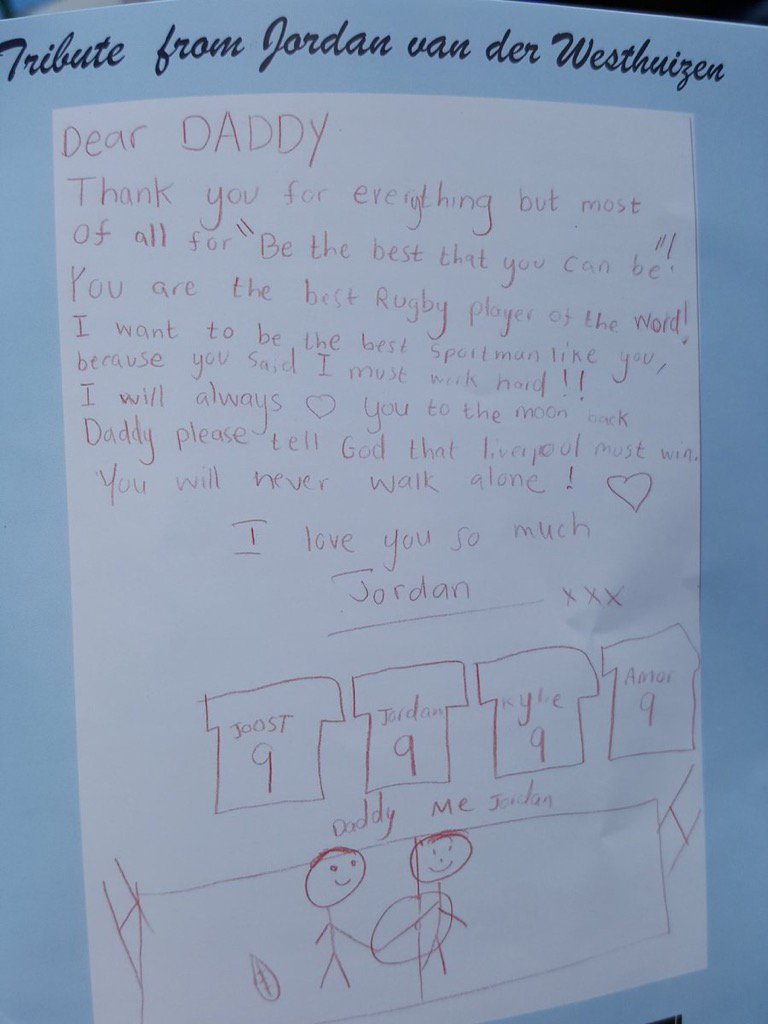 Tribute from Jordan van der Westhuizen
Dear DADDY
Thank you for everyything but most
of all for "Be the best that you can be"!
You are the best Rugby player of the word!
I want to be the best Sportman like you,
because you said I must work hard!!
I will always ♡ you to the moon back
Daddy please tell God that liverpool must win.
You will never walk alone! ♡
I love you so much
Jordan xxx
JOOST Jordan Kylie Amor
9 9 9 9
Daddy Me Jordan